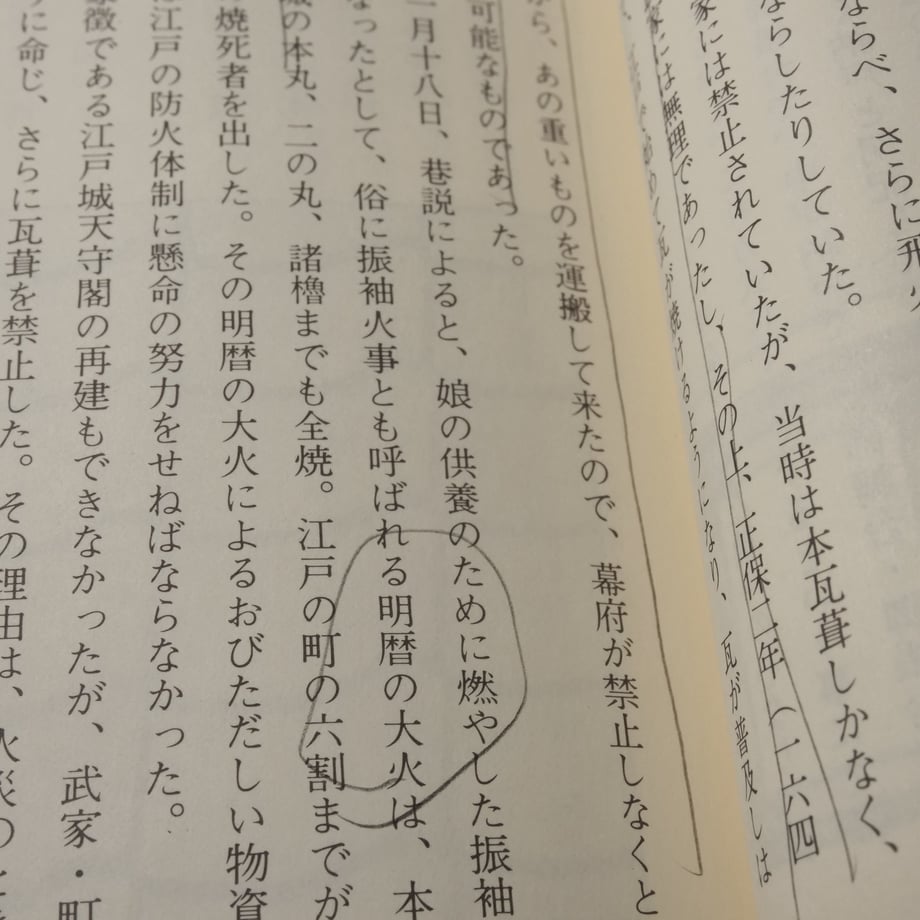 ならべ、さらに
ならしたりしていた。
家には禁止されていたが、当時は本瓦葺しかなく、
家には無理であったし、その上、正保二年（一六四
瓦が焼けるようになり、瓦が普及しは
から、あの重いものを運搬して来たので、幕府が禁止しなくと
可能なものであった。
一月十八日、巷説によると、娘の供養のために燃やした振袖
なったとして、俗に振袖火事とも呼ばれる明暦の大火は、本
城の本丸、二の丸、諸櫓までも全焼。江戸の町の六割までが
焼死者を出した。その明暦の大火によるおびただしい物資
は江戸の防火体制に懸命の努力をせねばならなかった。
象徴である江戸城天守閣の再建もできなかったが、武家・町
うに命じ、さらに瓦葺を禁止した。その理由は、火災の